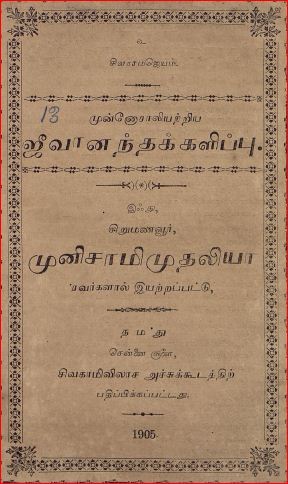 உ
சிவாசமஜெயம்.
13
முன்னோராலியற்றிய
ஜீவானந்தக்களிப்பு.
இஃது,
சிறுமணவூர்,
முனிசாமிமுதலியா
ரவர்களால் இயற்றப்பட்டு,
தமது
சென்னை சூளை,
சிவகாமிவிலாச அச்சுக்கூடத்திற்
பதிப்பிக்கப்பட்டது.
1905.